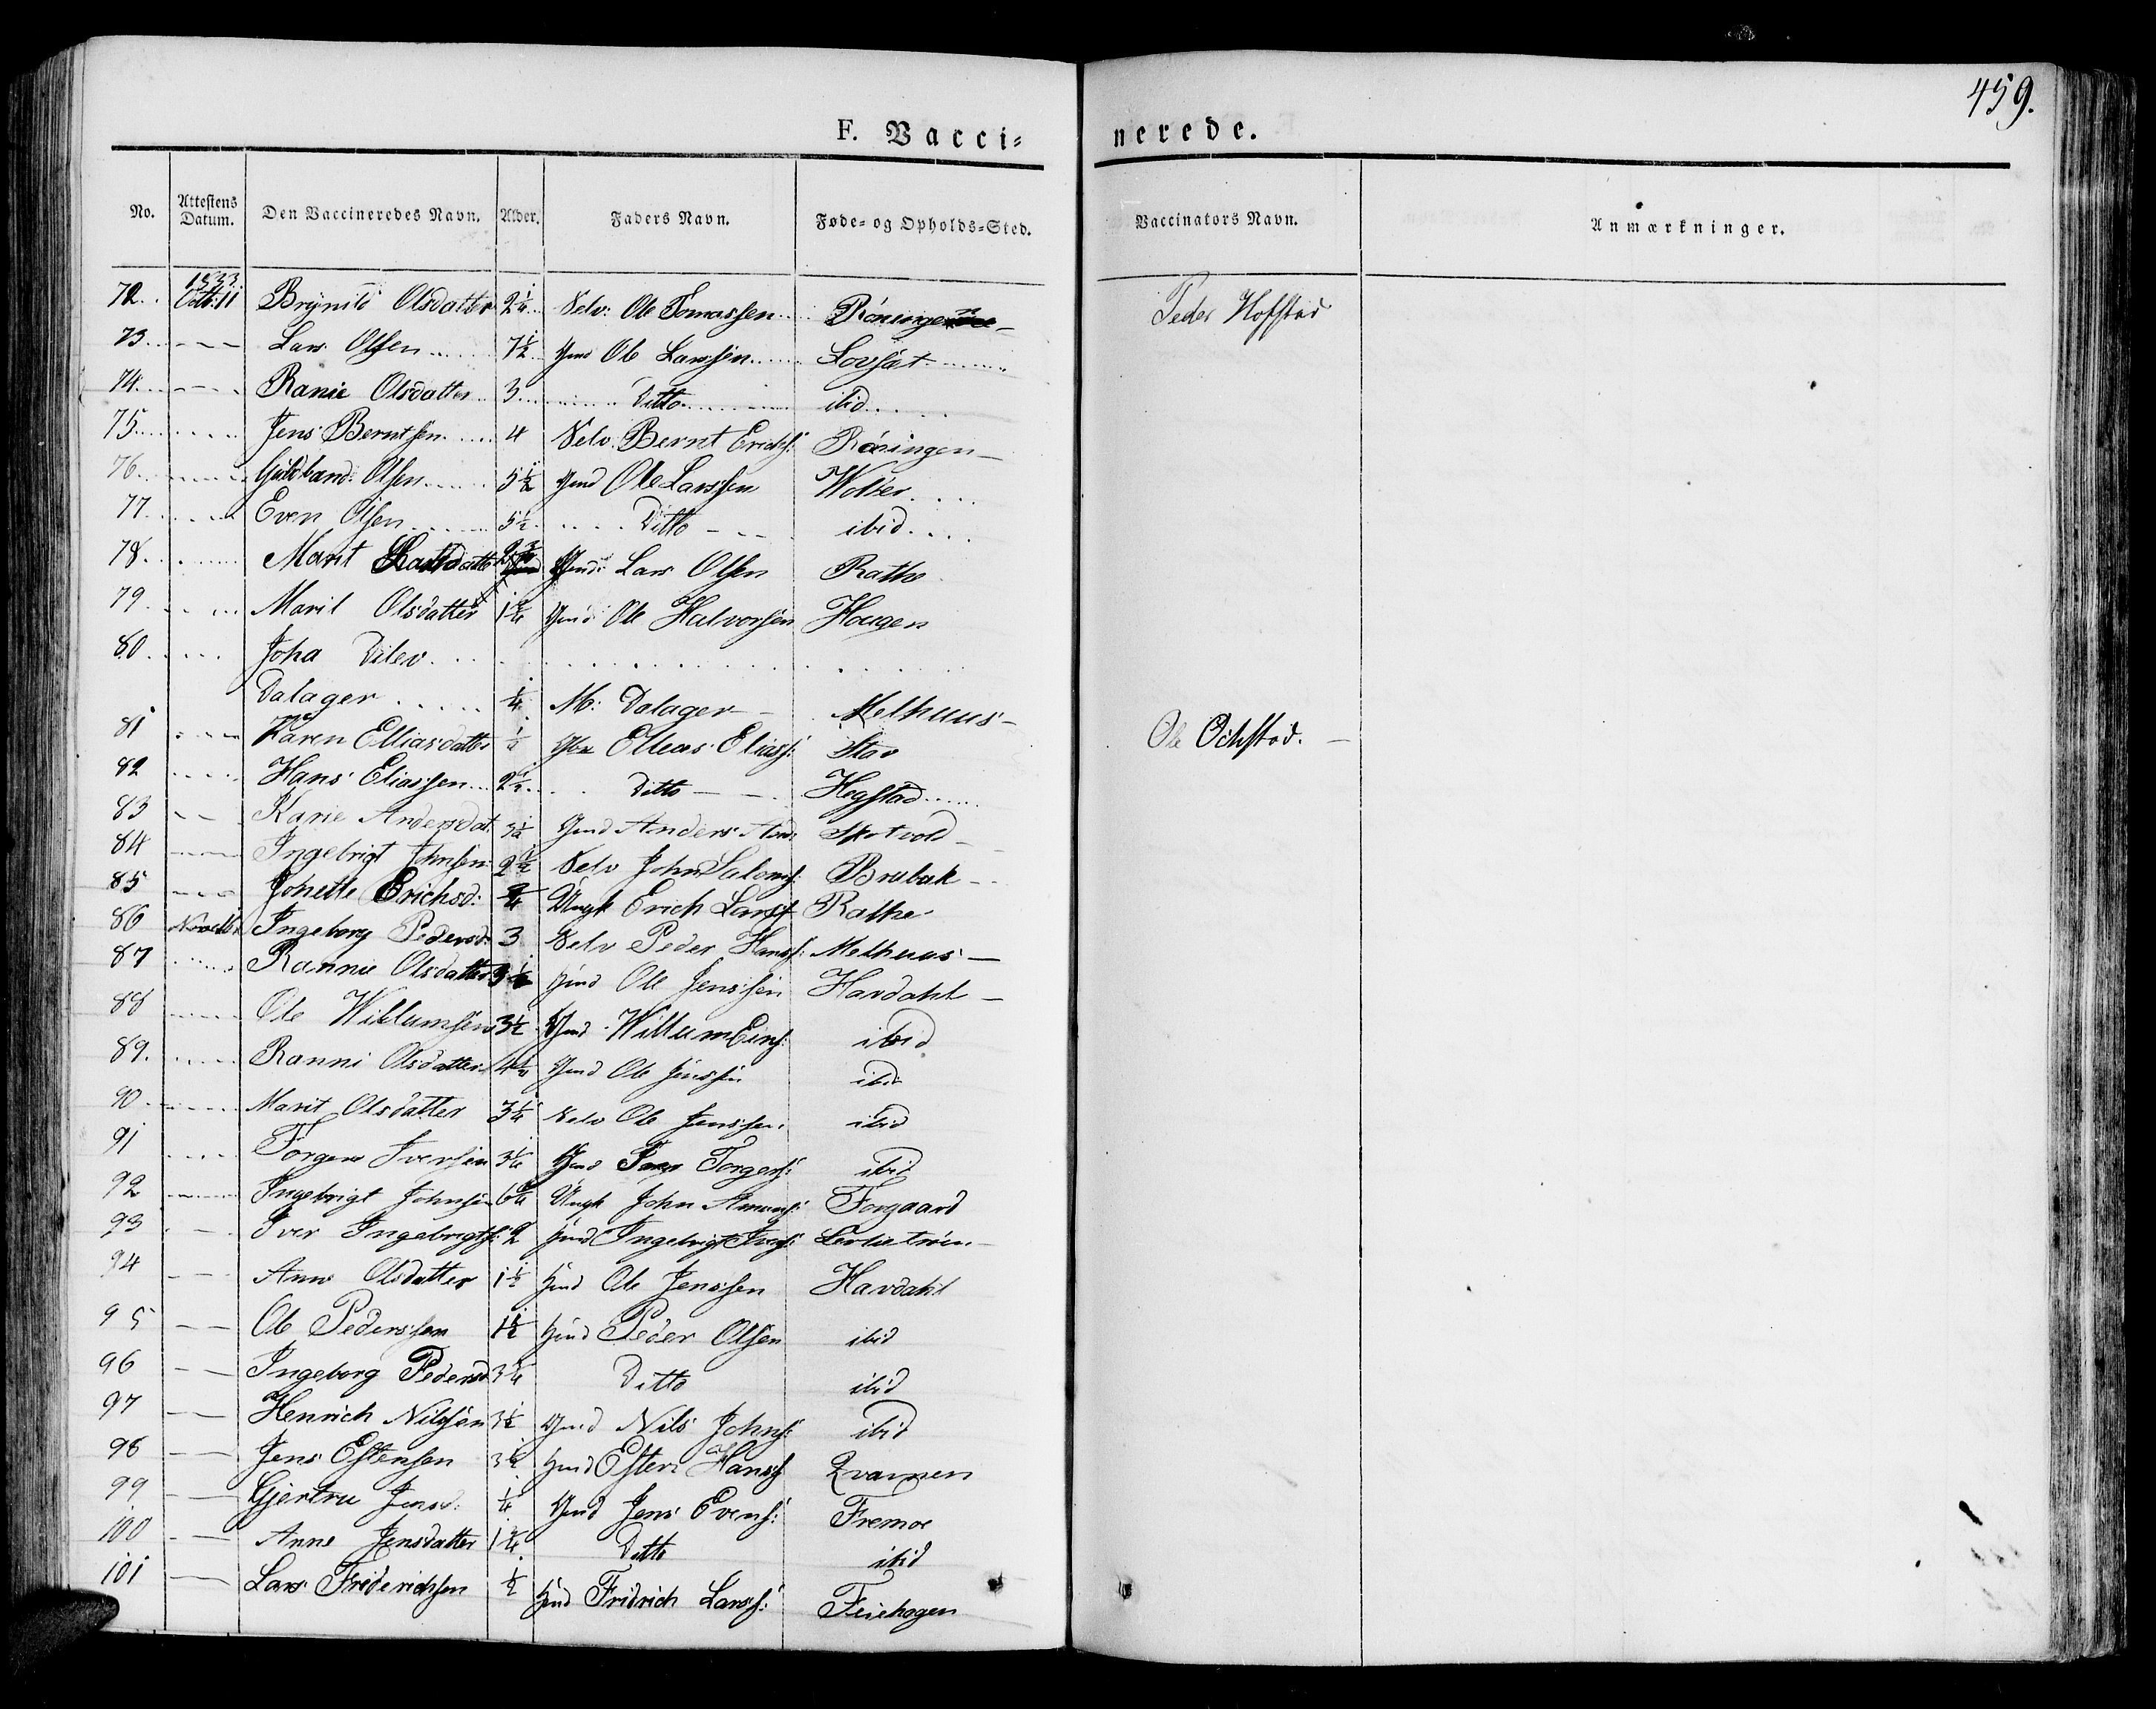 459.
F. Vacci=
nerede.
No. Attestens Datum. Den Vaccineredes Navn. Alder. Faders Navn. Føde= og Opholds=Sted. Vaccinators Navn. Anmærkninger.
1833
72. Octb: 11 Brynild Olsdatter 2 1/4 Selv: Ole Tomassen Peder Hofstad
73 Lars Olsen 7 1/2 Ole Larssen Lovset
74 Ranie Olsdatter 3 Ditto ibid
75 Jens Berntsen 4 Selv: Bernt Erichs: Røeingen
76 Guldbrand Olsen 5 1/2 Gmd Ole Larssen
77 Even Olsen 5 1/2 Ditto ibid
78 Marit Larsdatter Gmd: Lars Olsen Rathe
79 Marit Olsdatter Gmd Ole Halvorsen Hougen
80 Joha Ditlev
Dalager 1/4 M: Dalager Melhuus
81 Karen Elliasdatter Elleas Eliass: Stav Ole
82 Hans Eliassen 2 1/2 Ditto Hegstad
83 Karie Andersdat: Gmd Anders Skotvold
84 Ingebrigt Johnsen 2 1/2 Selv John Brubak
85 Johette Erichsd: Ungk Erich Larss Rathe
86 Novebr Ingeborg Pedersd: 3 Selv Peder Hanss: Melhuus
87 Rannie Olsdatter Gmd Ole Jenssen Havdahl
88 Ole Willumsen 3 1/2 Gmd Willum ibid
89. Ranni Olsdatter Gmd Ole Jenssen ibid
90 Marit Olsdatter 3 1/4 Selv Ole Jenssen ibid
91 Torger Iversen 3 1/4 Gmd Torgers: ibid
92 Ingebrigt Johnsen Ungk John Forgaard
93 Iver Ingebrigts: 2 Gmd Ingebrigt Ivers:
94 Anne Olsdatter 1 1/2 Gmd Ole Jenssen Havdahl
95 Ole Pederssen 1 1/2 Gmd Peder Olsen ibid
96 Ingeborg Pedersd Ditto ibid
97 Henrich Nilssen 3 1/2 Gmd Nils Johns: ibid
98 Jens Estensen Gmd Esten Hanss Qvamen
99 Gjertru Jensd: 1/4 Gmd Jens Evens: Fremoe
100 Anne Jensdatter Ditto ibid
101 Lars Friderichsen 1/2 Gmd Fridrich Larss: Feiehagen